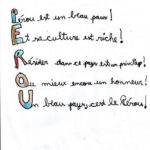 Pérou est un beau pays !
Et sa culture est riche !
Résider dans ce pays est un !
Ou mieux encore un honneur !
Un beau pays, c'est le Pérou !